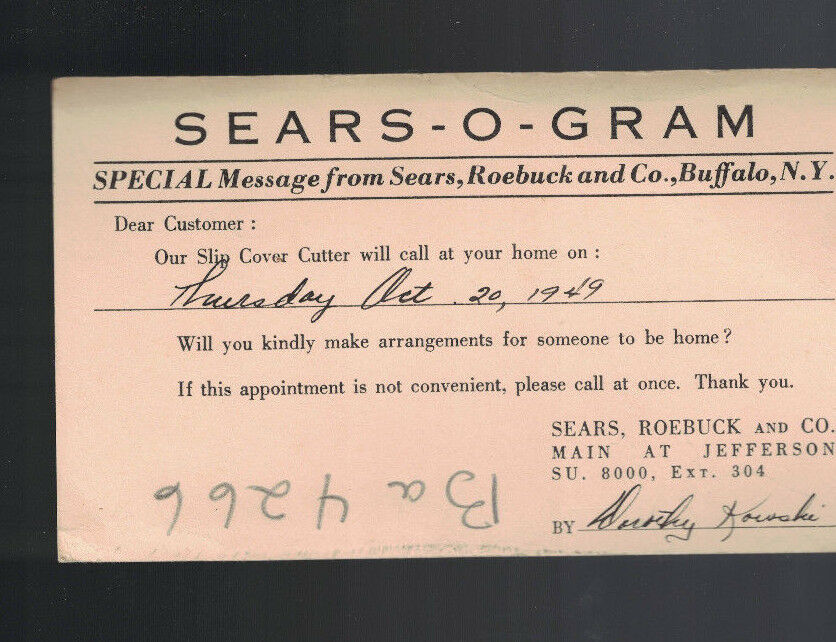 SEARS-O-GRAM
SPECIAL Message from Sears, Roebuck and Co., Buffalo, N.Y.
Dear Customer :
Our Slip Cover Cutter will call at your home on :
Thursday Oct. 20, 1949
Will you kindly make arrangements for someone to be home?
If this appointment is not convenient, please call at once. Thank you.
SEARS, ROEBUCK AND CO.
MAIN AT JEFFERSON
SU. 8000, EXT. 304
BY Dorothy
Ba 4266